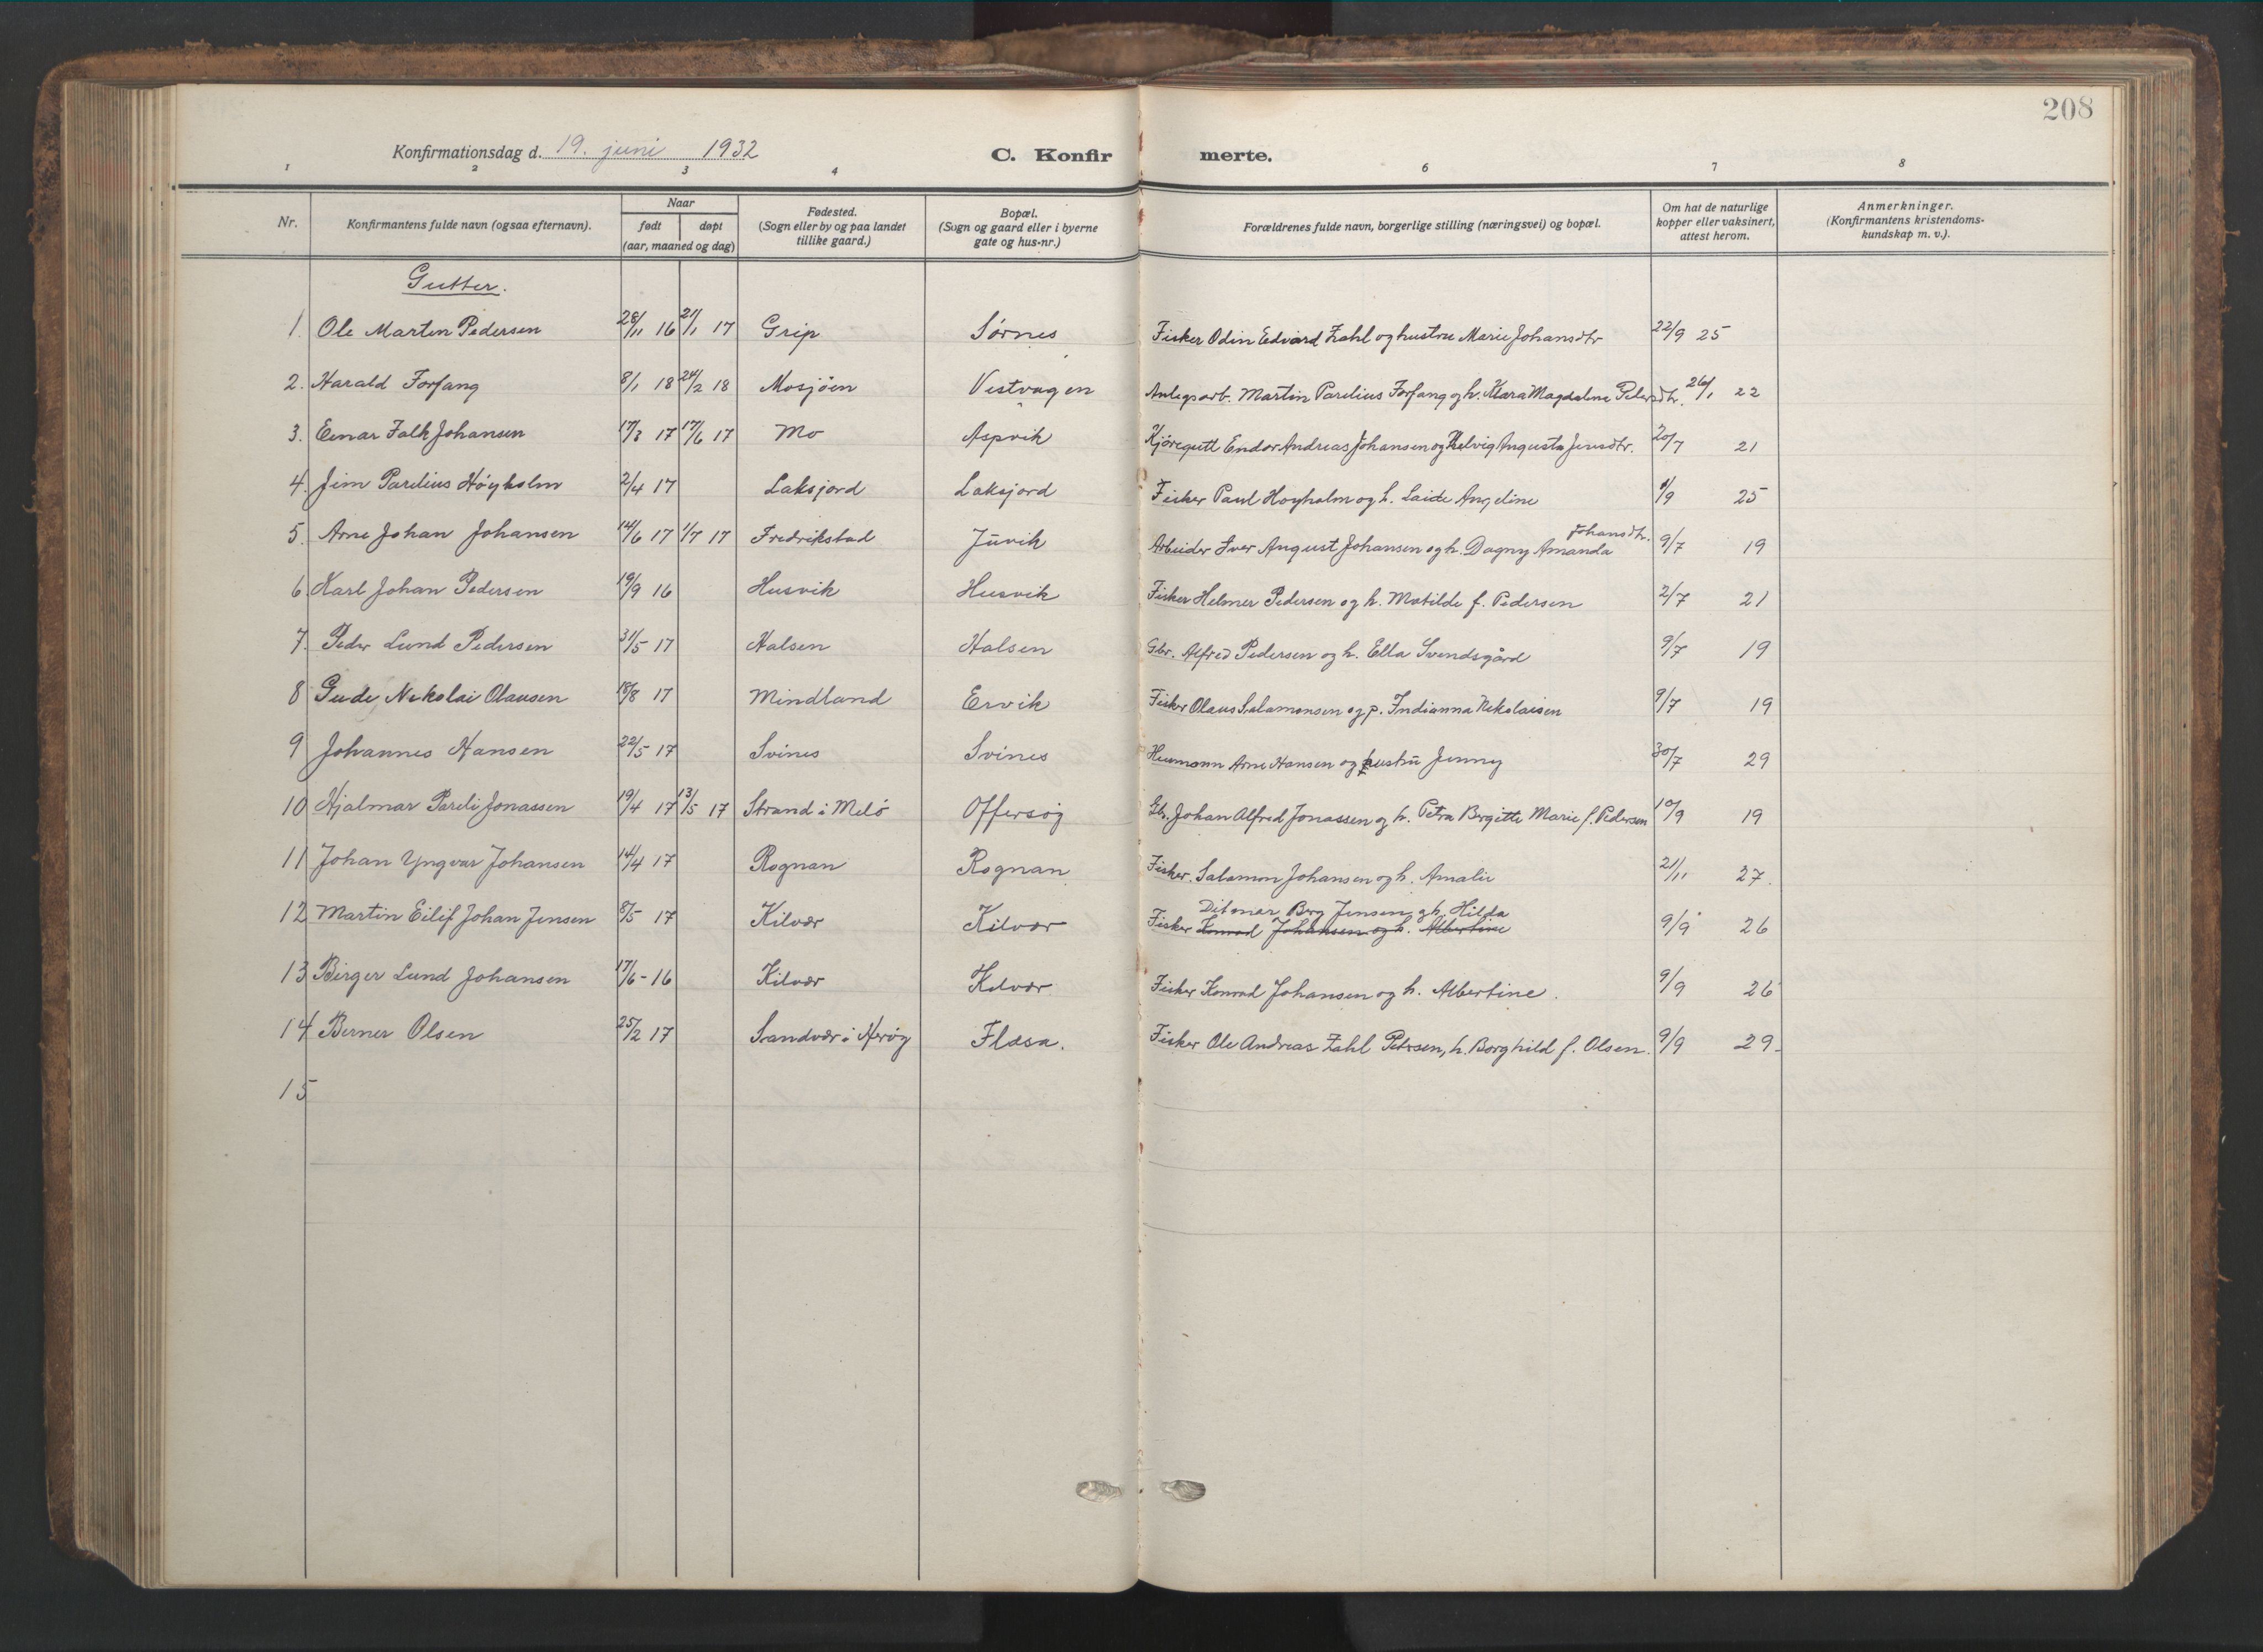 208
Konfirmationsdag d. 19. juni 1932 C. Konfir merte.
1 2 3 4 6 7 8
Nr. Konfirmantens fulde navn (ogsaa efternavn). Naar født døpt (aar, maaned og dag) Fødested. (Sogn eller by og paa landet tillike gaard.) Bopæl. (Sogn og gaard eller i byerne gate og hus-nr.) Forældrenes fulde navn, borgerlige stilling (næringsvei) og bopæl. Om hat de naturlige kopper eller vaksinert, attest herom. Anmerkninger. (Konfirmantens kristendoms- kundskap m. v.).
Gutter.
1. Ole Martin Pedersen 28/11 16 21/1 17 Grip Sørnes Fisker Odin Edvard Zahl og hustru Marie Johansdtr 22/9 25
2. Harald Forfang 8/1 18 24/2 18 Mosjöen Vestvagen Anlegsarb. Martin Parelius Forfang og h. Klara Magdalene Pedersdtr. 26/1 22
3. Einar Falk Johansen 17/3 17 17/6 17 Mo Aspvik Kjöregutt Endor Andreas Johansen og Helvig Augusta Jensdtr. 20/7 21
4. Jim Parelius Høyholm 2/4 17 Laksjord Laksjord Fisker Paul Hoyholm og h. Laide Angeline 1/9 25
5. Arne Johan Johansen 14/6 17 1/7 17 Fredrikstad Juvik Arbeider Iver August Johansen og h. Dagny Amanda Johansdtr. 9/7 19
6. Karl Johan Pedersen 19/9 16 Husvik Husvik Fisker Helmer Pedersen og h. Matilde f. Pedersen 2/7 21
7. Peder Lund Pedersen 31/5 17 Halsen Halsen Gbr. Alfred Pedersen og h. Ella Svendsgård 9/7 19
8 Gude Nikolai Olausen 18/8 17 Mindland Ervik Fisker Olaus Salamonsen og p. Indianna Nikolaisen 9/7 19
9 Johannes Hansen 22/5 17 Svines Svines Husmann Arne Hansen og hustru Jenny 30/7 29
10 Hjalmar Pareli Jonassen 19/4 17 13/5 17 Strand i Melö Offersøy Gbr. Johan Alfred Jonassen og h. Petra Bergitte Marie f. Pedersen 10/9 19
11 Johan Yngvar Johansen 14/4 17 Rognan Rognan Fisker. Salamon Johansen og h. Amalie 21/11 27.
Ditmar Berg Jensen og h. Hilda
12 Martin Eilif Johan Jensen 8/5 17 Kilvær Kilvær Fisker Konrad Johansen og h. Albertine 9/9 26
13 Birger Lund Johansen 17/6 - 16 Kilvær Kilvær Fisker Konrad Johansen og h. Albertine. 9/9 26
14 Berner Olsen 25/2 17 Sandvær i Herøy Flæsa. Fisker Ole Andreas Zahl Petersen, h. Borghild f. Olsen. 9/9 29.
15